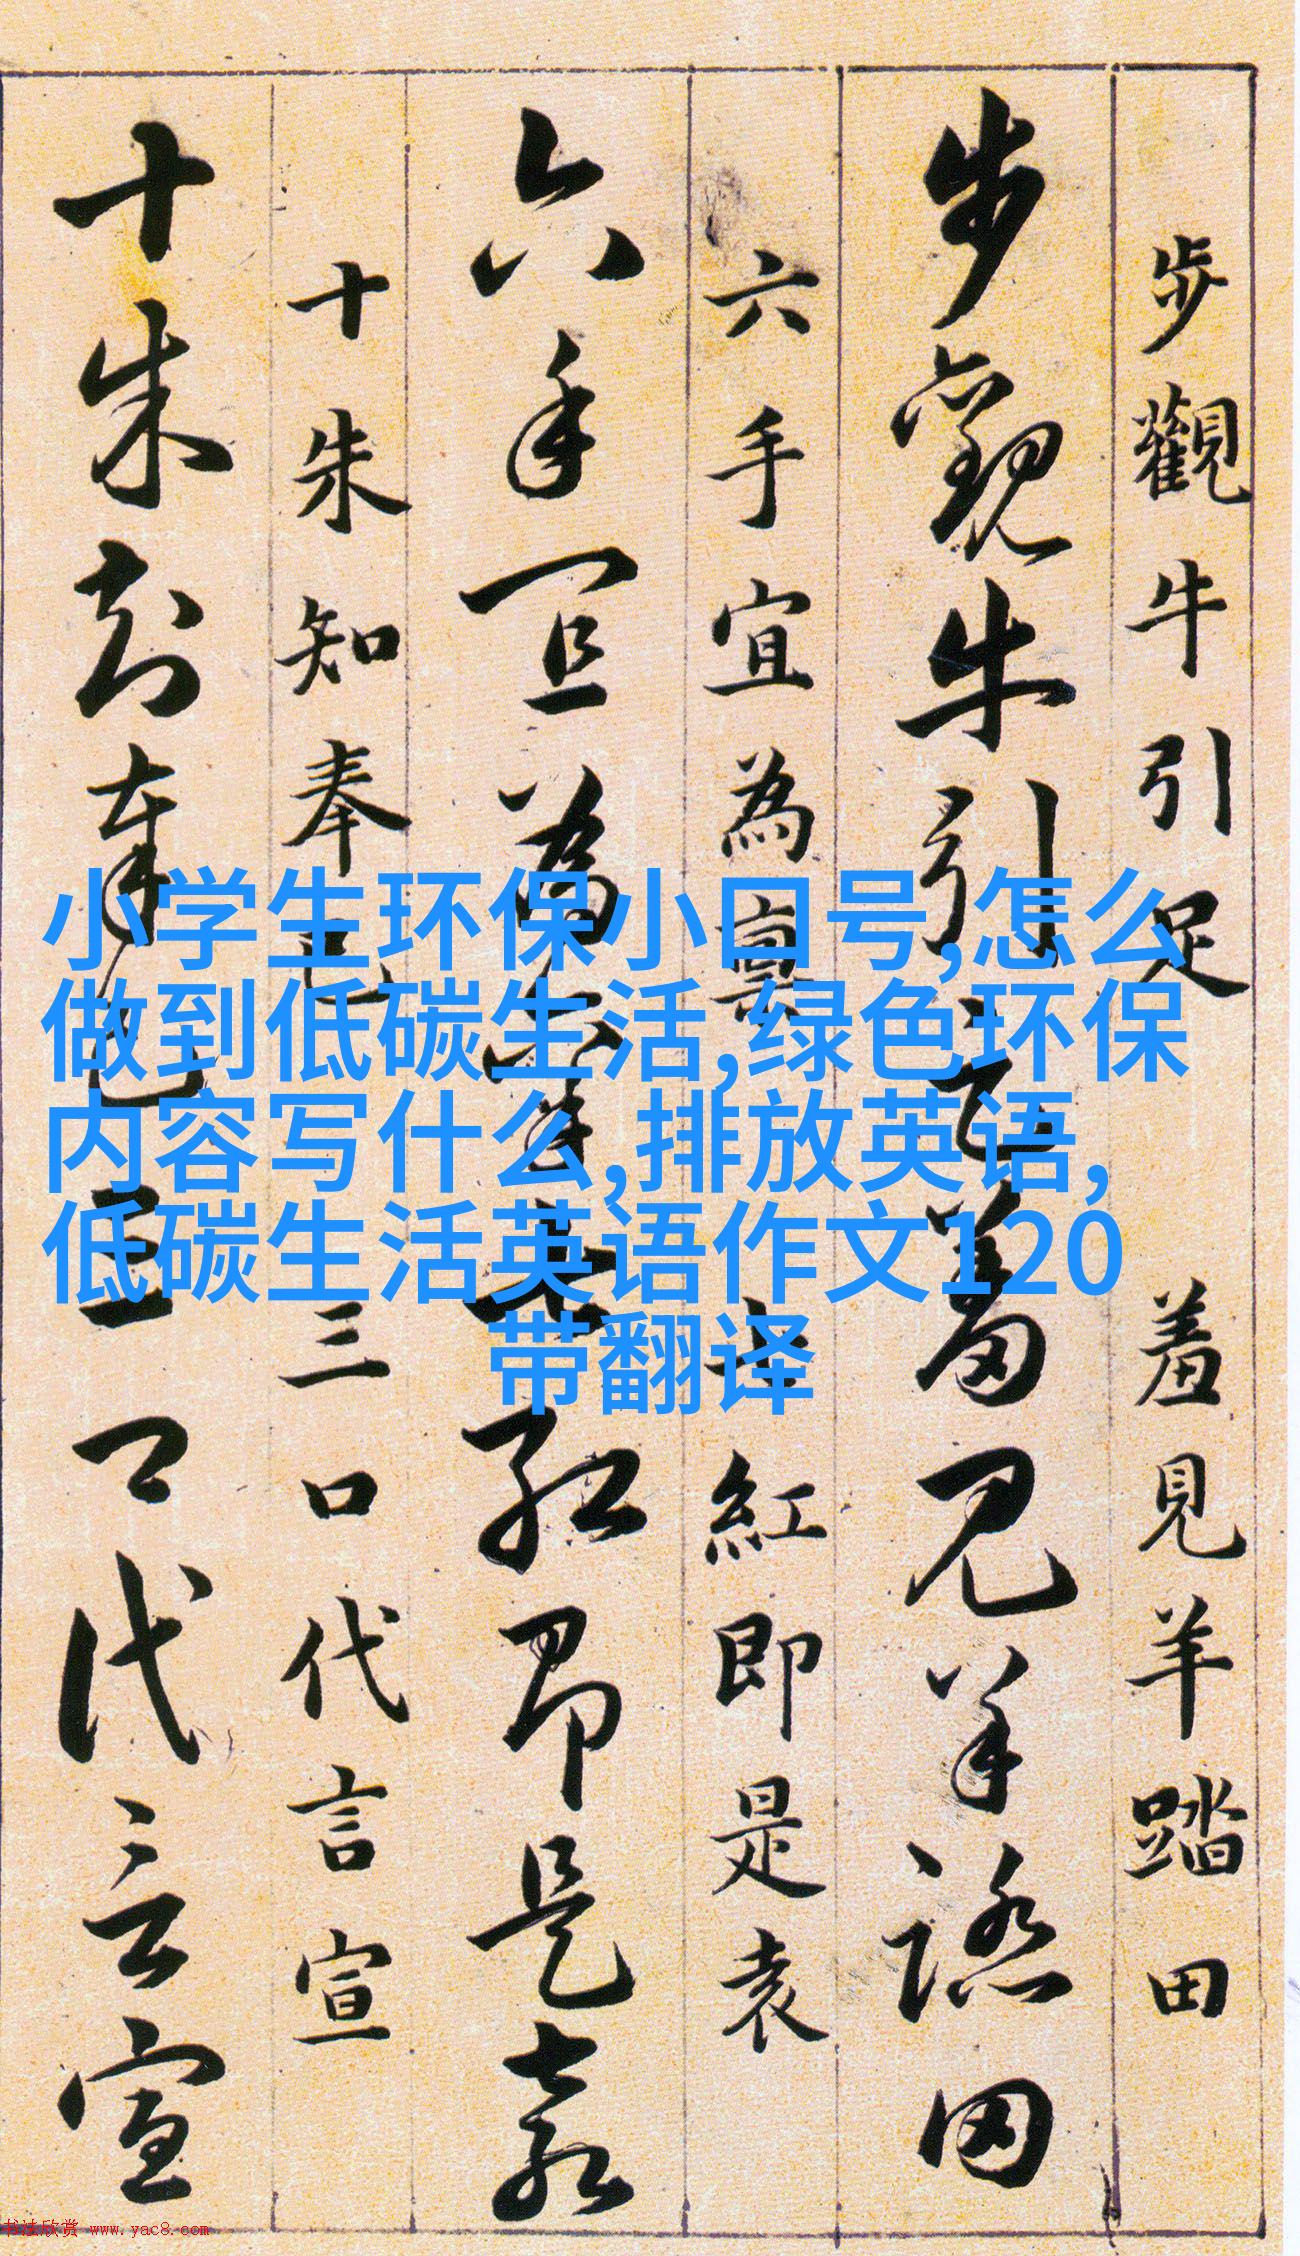 步觀牛引足 羞見羊踏田
步觀牛引足羞見羊踏田
六手宜為稟 七紅即是袁
六手宜為稟七紅即是袁
十朱知奉已 三口代言宣
十朱知奉已三口代言宣
小学生环保小口号,怎么
做到低碳生活,绿色环保
内容写什么,排放英语,
低碳生活英语作文120
带翻译
书法欣赏 www.yac8.com